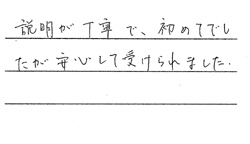 説明が丁寧で、初めてでし
たが安心して受けられました.